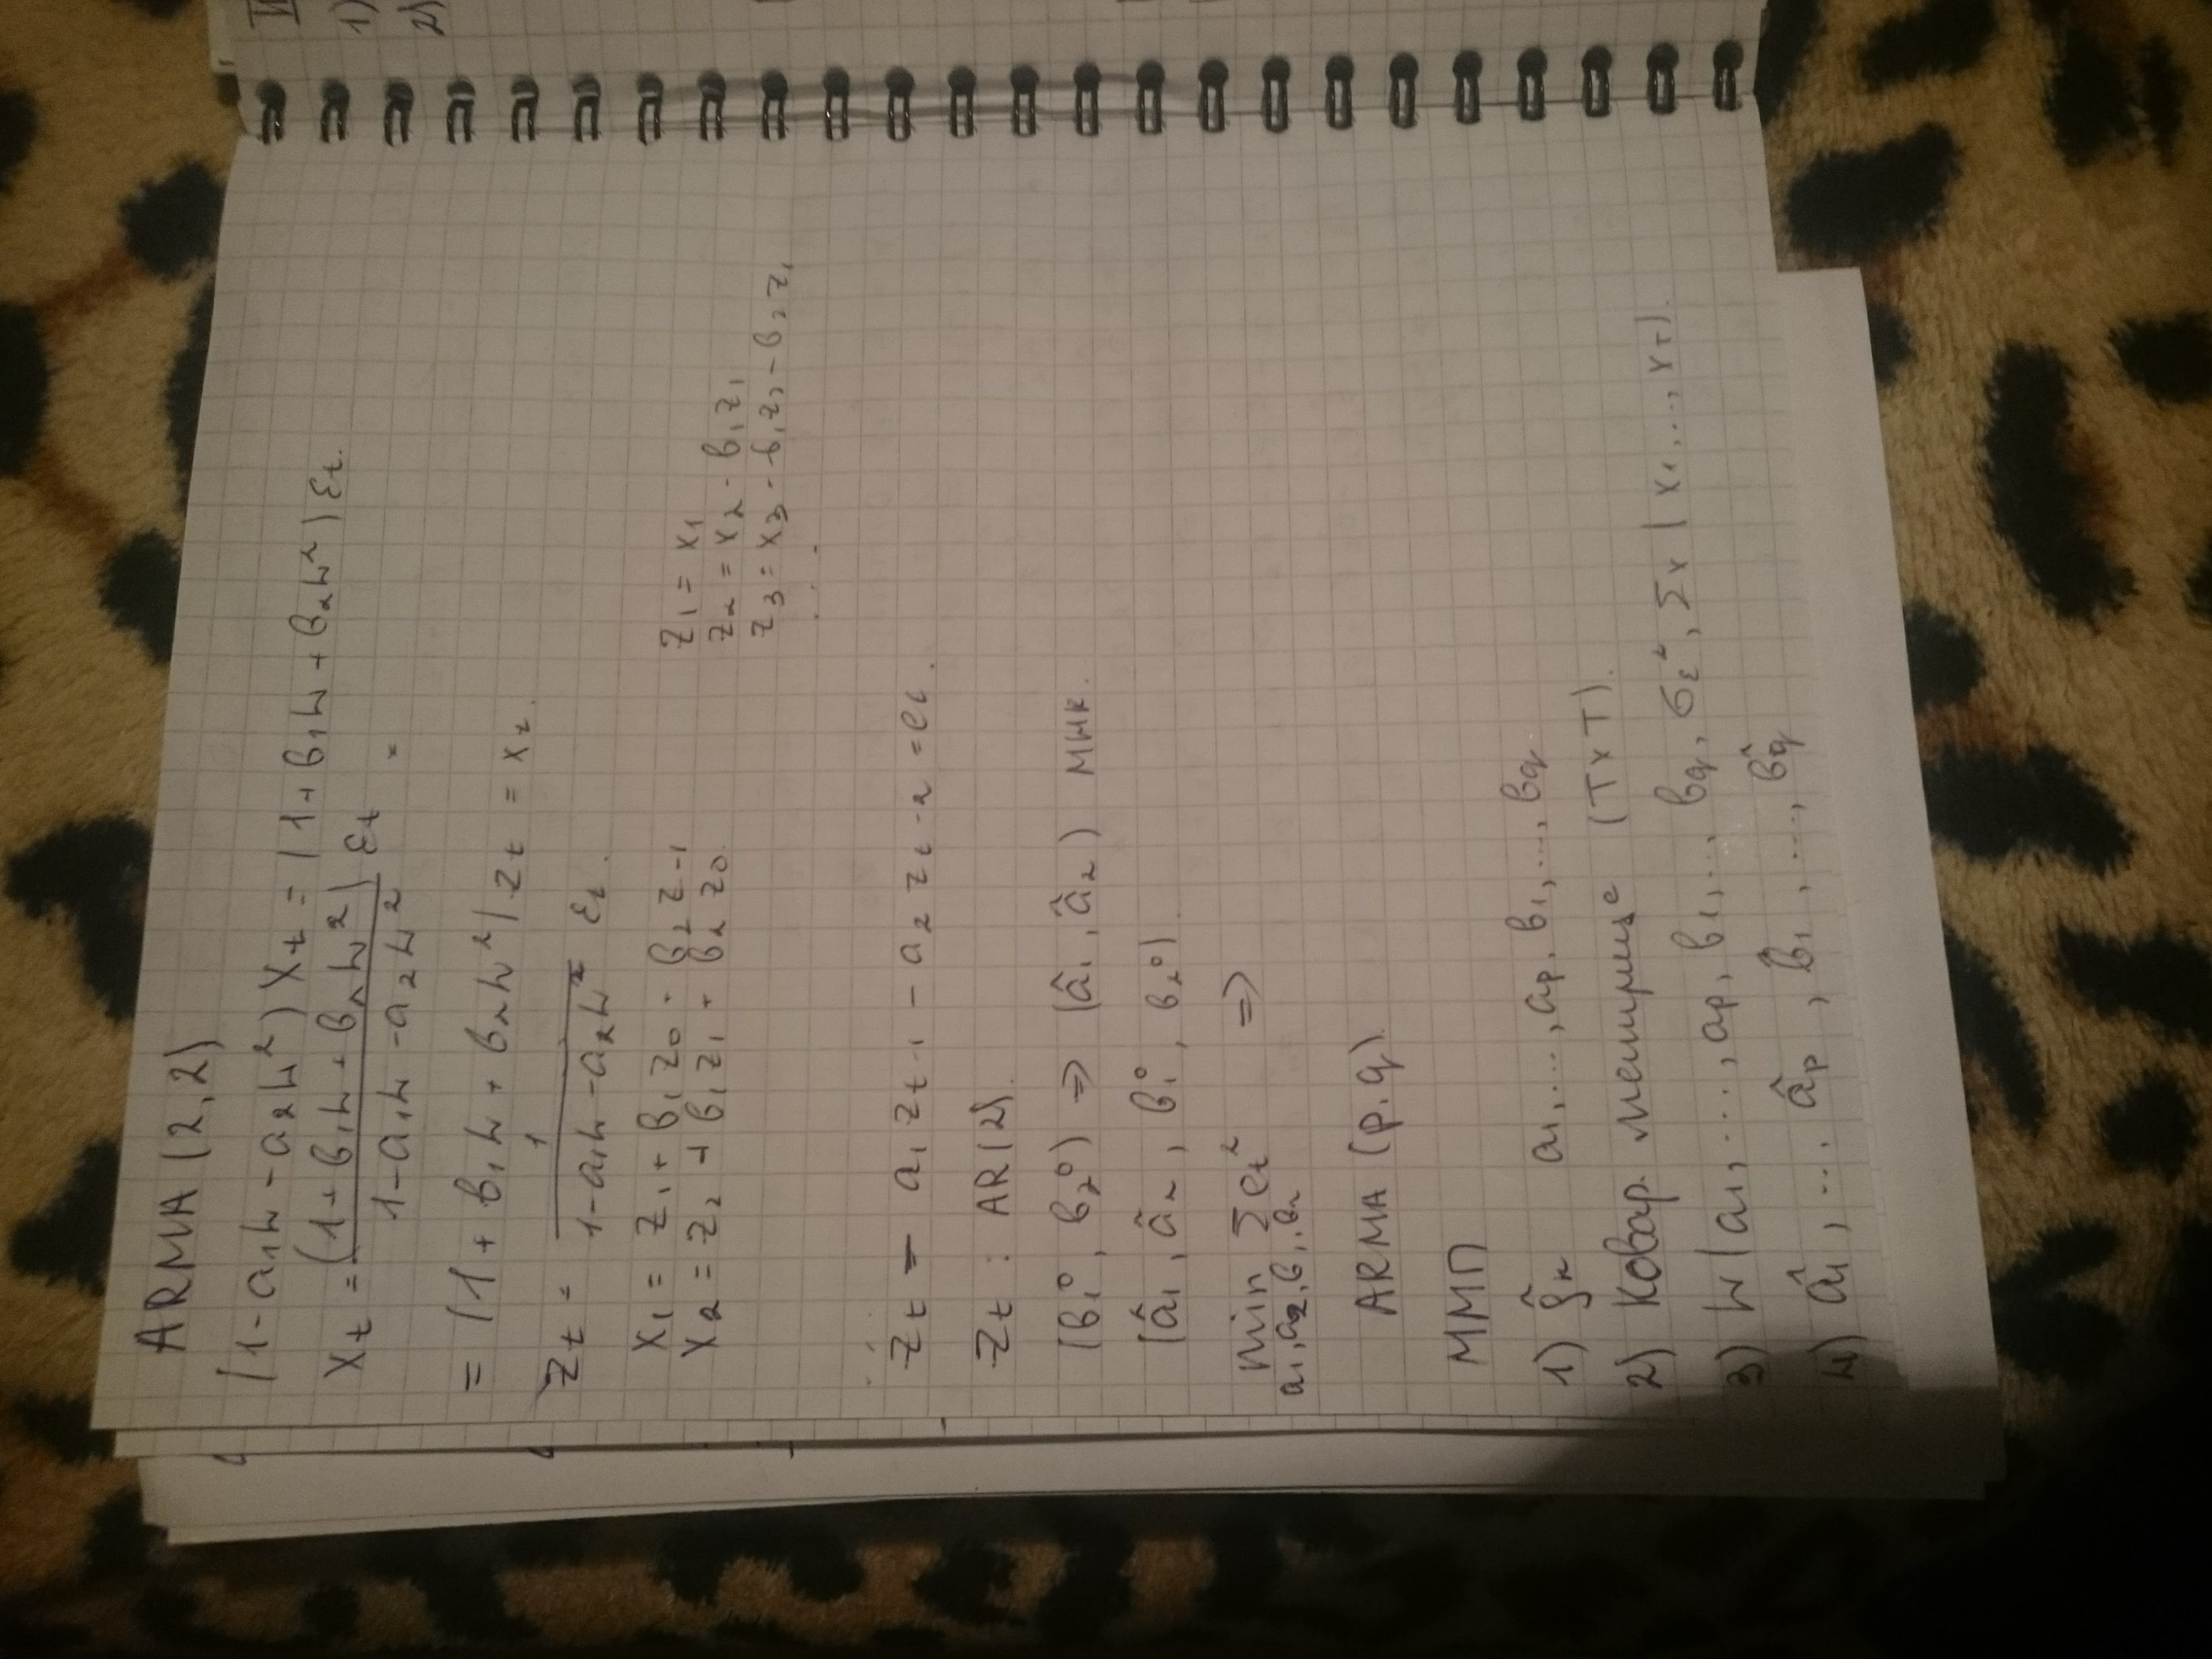 ARMA (2,2)
(1 - a₁L - a₂L²) Xₜ = (1 + b₁L + b₂L²) εₜ.
Xₜ = (1 + b₁L + b₂L²) εₜ / 1 - a₁L - a₂L² =
= (1 + b₁L + b₂L²) zₜ = xₜ.
zₜ = 1 / 1 - a₁L - a₂L² εₜ.
x₁ = z₁ + b₁z₀ + b₂z₋₁
x₂ = z₂ + b₁z₁ + b₂z₀.
z₁ = x₁
z₂ = x₂ - b₁z₁
z₃ = x₃ - b₁z₂ - b₂z₁
. . .
zₜ - a₁zₜ₋₁ - a₂zₜ₋₂ = eₜ.
zₜ : AR(2).
(b₁⁰, b₂⁰) ⇒ (â₁, â₂) МНК.
(â₁, â₂, b₁⁰, b₂⁰)
min Σeₜ² ⇒
a₁,a₂,b₁,b₂
ARMA (p,q).
ММП
1) ρ̂ₖ a₁,...,aₚ, b₁,...,b_q
2) Ковар. матрице (T×T).
3) L(a₁,...,aₚ, b₁,..., b_q, σ_ε², Σx | x₁,..., x_T).
4) â₁,... âₚ, b̂₁,..., b̂_q